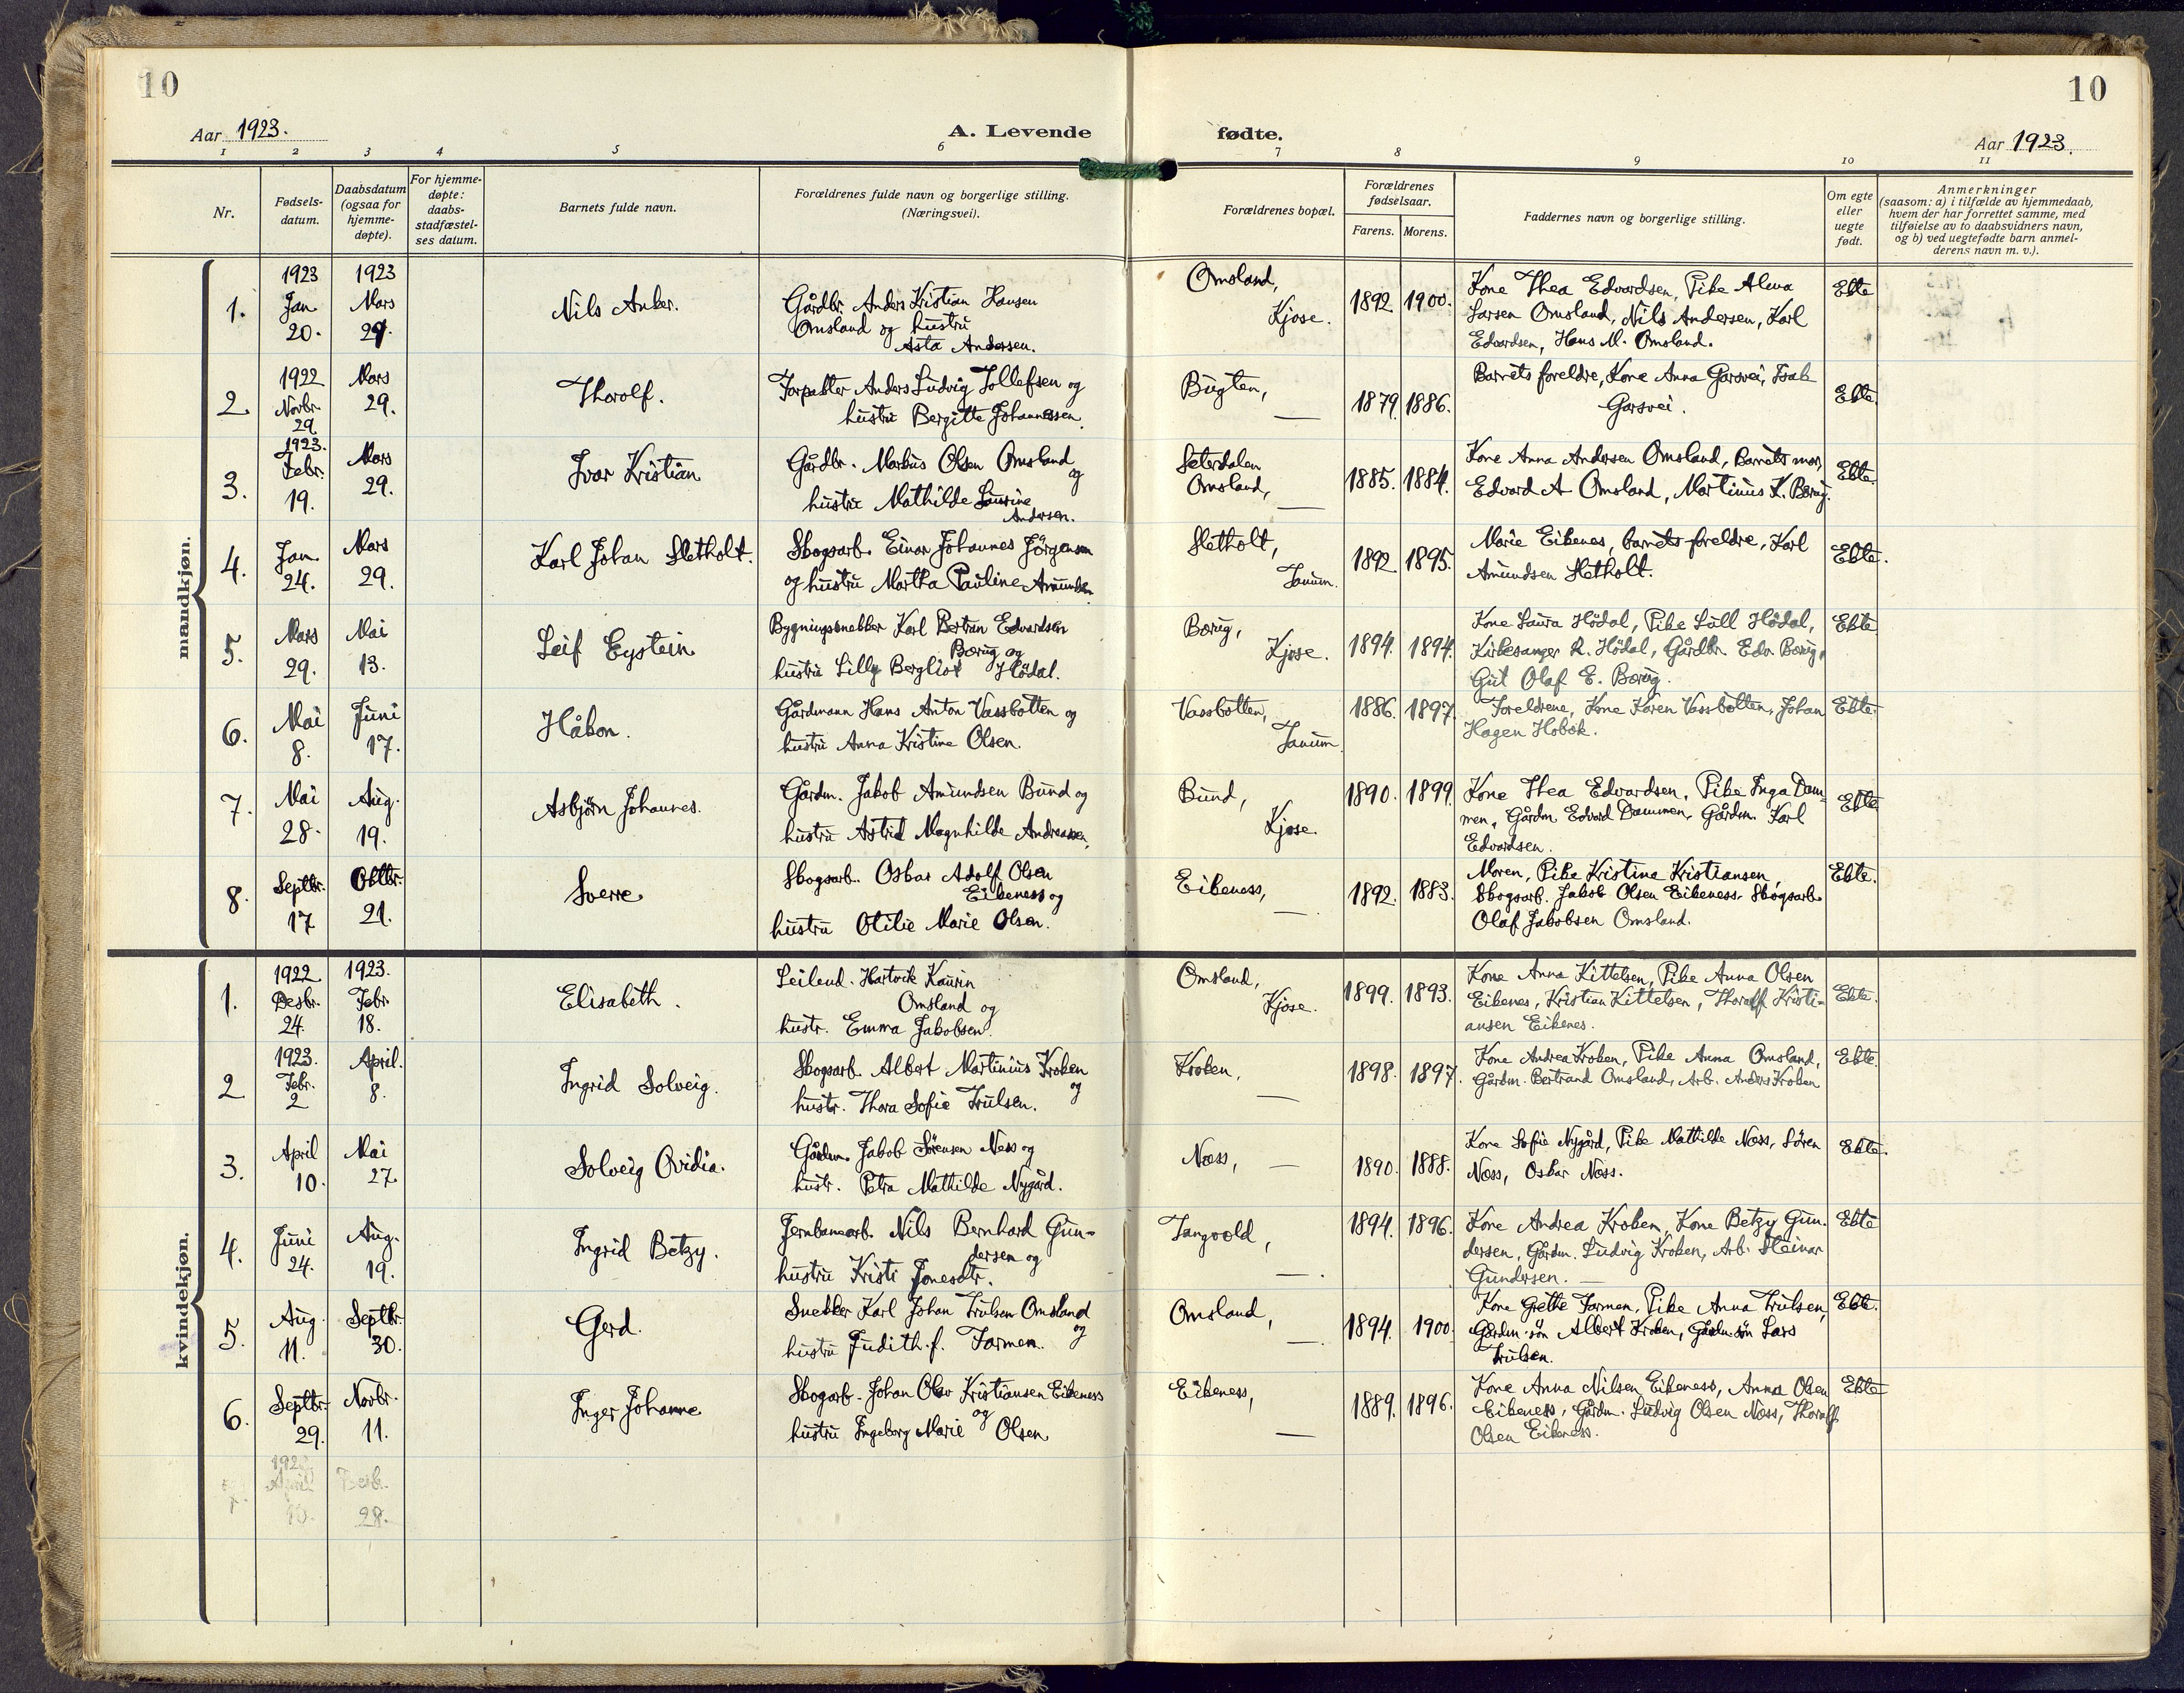 10
10
Aar 1923.
A. Levende fødte.
Aar 1923.
1 2 3 4 5 6 7 8 9 10 11
Nr.
Fødselsdatum.
Daabsdatum (ogsaa for hjemmedøpte).
For hjemmedøpte: daabsstadfæstelses datum.
Barnets fulde navn.
Forældrenes fulde navn og borgerlige stilling. (Næringsvei).
Forældrenes bopæl.
Forældrenes fødselsaar.
Farens. Morens.
Faddernes navn og borgerlige stilling.
Om egte eller uegte født.
Anmerkninger
(saasom: a) i tilfælde av hjemmedaab,
hvem der har forrettet samme, med
tilføielse av to daabsvidners navn,
og b) ved uegtefødte barn anmelderens navn m. v.).
mandkjøn.
1.
1923 Jan. 20.
1923 Mars 29.
Nils Anker.
Gårdbr. Anders Kristian Hansen
Omsland og hustru
Asta Andersen.
Omsland,
Kjose.
1892 1900.
Kone Thea Edvardsen, Pike Alma
Larsen Omsland, Nils Andersen, Karl
Edvardsen, Hans M. Omsland.
Ekte
2.
1922 Novbr. 29.
Mars 29.
Thorolf.
Forpakter Anders Ludvig Tollefsen og
hustru Bergitte Johannessen.
Bugten,
—
1879. 1886.
Barnets foreldre, Kone Anna Garsvei, Isak
Garsvei.
Ekte
3.
1923. Febr. 19.
Mars 29.
Ivar Kristian
Gårdbr. Markus Olsen Omsland
og
hustru Mathilde Laurine
Andersen.
Seterdalen
Omsland,
—
1885. 1884.
Kone Anna Andersen Omsland, Barnets mor,
Edvard A Omsland, Martinius K. Borug.
Ekte
4.
Jan. 24.
Mars 29.
Karl Johan Sletholt.
Skogsarb. Einar Johannes Jörgensen
og hustru Martha Pauline Amundsen
Sletholt,
Tanum.
1892 1895.
Marie Eikenes, barnets foreldre, Karl
Amundsen Sletholt.
Ekte.
5.
Mars 29.
Mai 13.
Leif Eystein
Bygningssnekker Karl Bertran Edvardsen
Borug og
hustru Lilly Bergliot Hödal.
Borug,
Kjose.
1894. 1894.
Kone Laura Hödal, Pike Lull Hödal,
Kirkesanger R. Hödal, Gårdbr. Edv. Borug,
Gut Olaf E. Borug.
Ekte
6.
Mai 8.
Juni 17.
Håkon.
Gårdmann Hans Anton Vassbotten og
hustru Anna Kristine Olsen.
Vassbotten,
Tanum.
1886. 1897.
Foreldrene, Kone Karen Vassbotten, Johan
Hagen Hobök.
Ekte
7.
Mai 28.
Aug. 19.
Asbjørn Johannes.
Gårdm. Jakob Amundsen Bund og
hustru Astrid Magnhilde Andreassen,
Bund,
Kjose.
1890. 1899.
Kone Thea Edvardsen, Pike Inga Dam-
men, Gårdm. Edvard Dammen, Gårdm. Karl
Edvardsen.
Ekte
8.
Septbr. 17
Oktbr. 21.
Sverre
Skogsarb. Oskar Adolf Olsen
Eikeness og
hustru Otilie Marie Olsen.
Eikeness,
—
1892. 1883.
Moren, Pike Kristina Kristiansen,
Skogsarb. Jakob Olsen Eikeness, Skogsarb.
Olaf Jakobsen Omsland.
Ekte.
kvindekjøn.
1.
1922 Desbr. 24.
1923. Febr. 18.
Elisabeth.
Leilend. Hartvik Kaurin
Omsland og
hustr. Emma Jakobsen.
Omsland,
Kjose.
1899. 1893.
Kone Anna Kittelsen, Pike Anna Olsen
Eikenes, Kristian Kittelsen, Thoralf Kristi-
ansen Eikenes.
Ekte.
2
1923. Febr. 2
April. 8.
Ingrid Solveig.
Skogsarb. Albert Martinius Kroken
og
hustr. Thora Sofie Trulsen.
Kroken,
—
1898. 1897.
Kone Andrea Kroken, Pike Anna Omsland,
Gårdm. Bertrand Omsland, Arb. Anders Kroken
Ekte.
3.
April 10.
Mai 27.
Solveig Ovidia.
Gårdm. Jakob Sørensen Ness og
hustr. Petra Mathilde Nygård.
Næss, —
1890. 1888.
Kone Sofie Nygård, Pike Mathilde Næss, Søren
Næss, Oskar Næss.
Ekte.
4.
Juni 24.
Aug. 19.
Ingrid Betzy.
Jernbanearb. Nils Bernhard Gun-
dersen og
hustru Kristi Jonesdtr.
Tangvold,
—.
1894. 1896.
Kone Andrea Kroken, Kone Betzy Gun-
dersen, Gårdm. Ludvig Kroken, Arb. Steinar
Gundersen. —
Ekte
5.
Aug. 11.
Septbr. 30.
Gerd.
Snekker Karl Johan Trulsen Omsland
og
hustru Judith f. Farmen.
Omsland,
—.
1894. 1900.
Kone Grethe Farmen, Pike Anna Trulsen,
Gårdm.sön Albert Kroken, Gårdm.sön Lars
Trulsen.
Ekte.
6.
Septbr. 29.
Novbr. 11.
Inger Johanne
Skogarb. Johan Olav Kristiansen Eikeness
og
hustru Ingeborg Marie Olsen
Eikeness,
—
1889. 1896.
Kone Anna Nilsen Eikeness, Anna Olsen
Eikeness, Gårdm. Ludvig Olsen Næss, Thoralf
Olsen Eikeness.
Ekte
April 10.
Desb. 28.